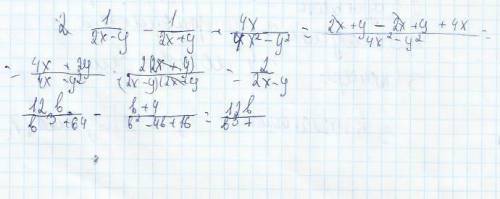 2 1/(2x-y) - 1/(2x+y) + 4x/(4x²-y²) = (2x+y - 2x+y + 4x)/(4x²-y²) =
= (4x + 2y)/(4x² - y²) = 2(2x+y)/((2x-y)(2x+y)) = 2/(2x-y)
12b/(b³+64) - (b+4)/(b²-4b+16) = 12b/(b³+